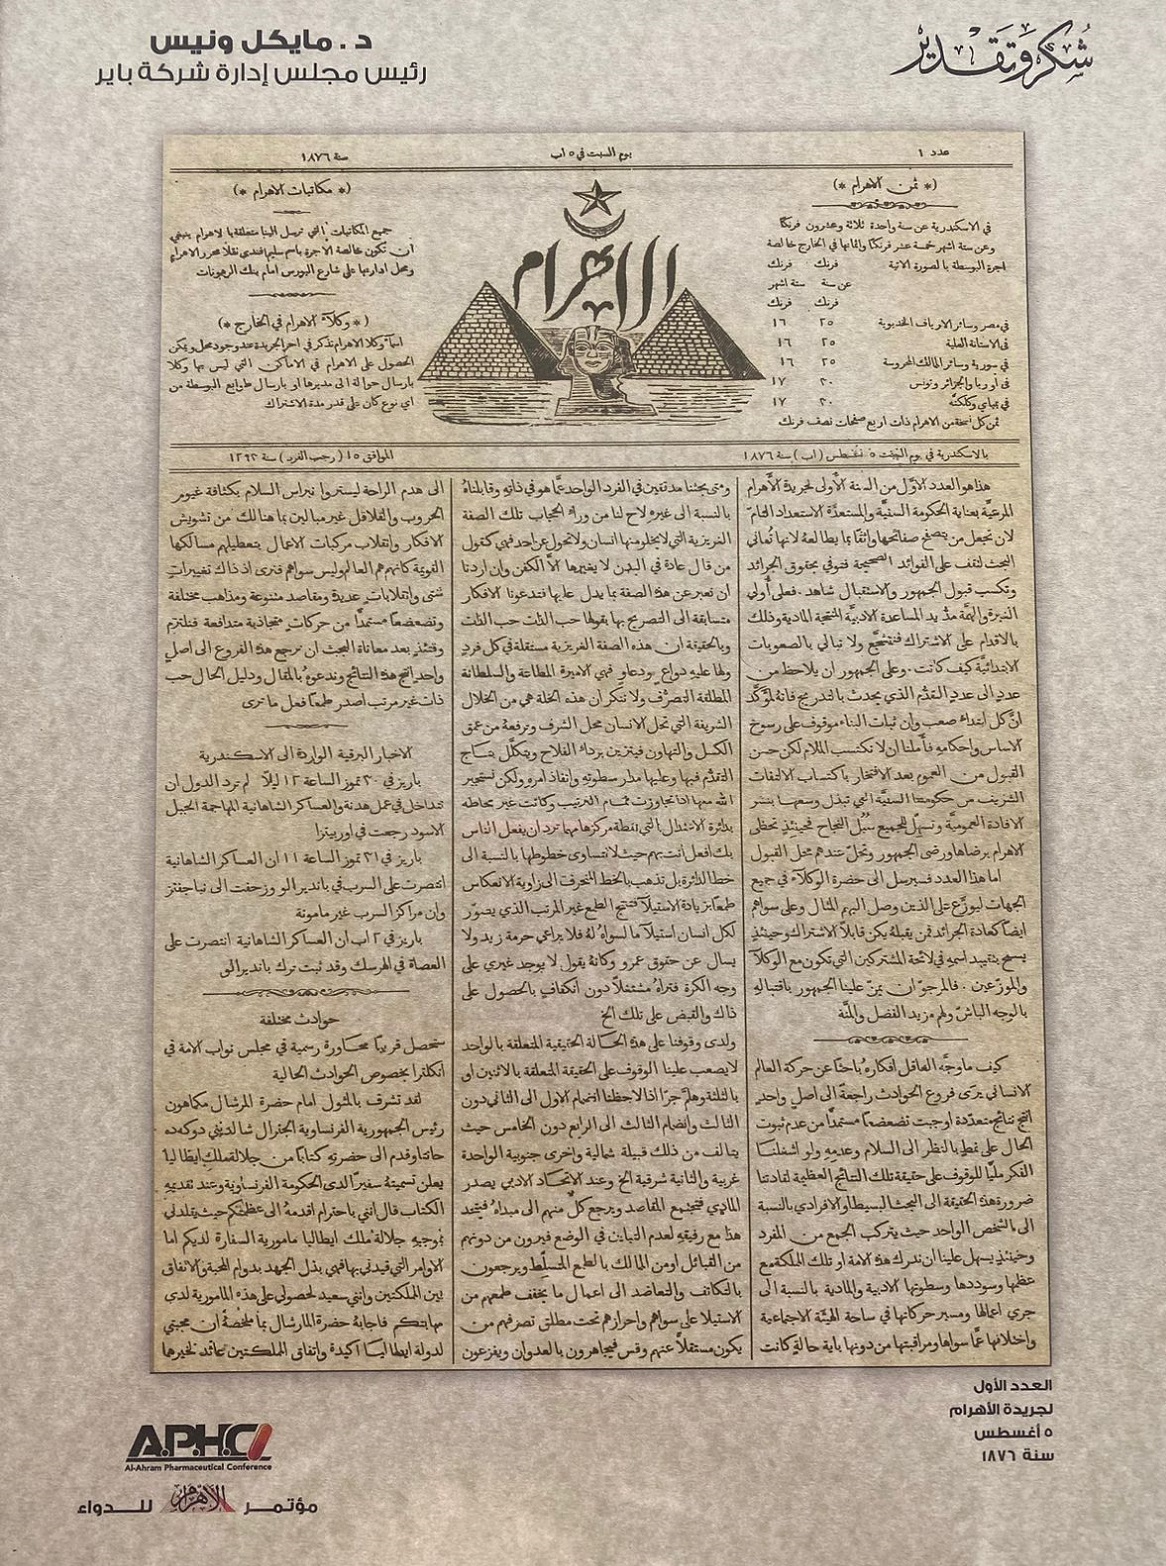 شكر وتقدير
د. مايكل ونيس
رئيس مجلس إدارة شركة باير
عدد ١
يوم السبت في ٥ اب
سنة ١٨٧٦
(* ثمن الاهرام *)
في الاسكندرية عن سنة واحدة ثلاثة وعشرون فرنكًا
وعن ستة اشهر خمسة عشر فرنكًا واثمانها في الخارج خالصة
اجرة البوسطة بالصورة الاتية
فرنك فرنك
عن سنة ستة اشهر
فرنك فرنك
في مصر وسائر الارياف الخديوية ٢٥ ١٦
في الاستانة العلية ٢٥ ١٦
في سورية وسائر الممالك المحروسة ٢٥ ١٦
في اوربا والجزائر وتونس ٣٠ ١٧
في بمباي وكلكتّه ٣٠ ١٧
ثمن كل نسخة من الاهرام ذات اربع صفحات نصف فرنك
الاهرام
(* مكاتبات الاهرام *)
جميع المكاتبات التي ترسل الينا متعلقة بالاهرام ينبغي
ان تكون خالصة الاجرة باسم سليم افندي نقلا محرر الاهرام
ومحل ادارتها على شارع البورس امام بنك الرهونات
(* وكلآء الاهرام في الخارج *)
اسمآء وكلا الاهرام تذكر في اخر الجريدة عند وجود محل ويمكن
الحصول على الاهرام في الاماكن التي ليس بها وكلا
بارسال حوالة الى مديرها او بارسال طوابع البوسطة من
اي نوع كان على قدر مدة الاشتراك
بالاسكندرية في يوم السبت ٥ اغسطس (اب) سنة ١٨٧٦
الموافق ١٥ (رجب الفرد) سنة ١٢٩٣
هذا هو العدد الاوّل من السنة الأولى لجريدة الأهرام
المرعيّة بعناية الحكومة السنيّة والمستعدّة الاستعداد التامّ
لان تجعل من يتصفح صفائحها واثقًا بما يطالعه لانها تُعاني
البحث لتقف على الفوائد الصحيحة فتوفي بحقوق الجرائد
وتكسب قبول الجمهور والاستقبال شاهد. فعلى أُولي
الغيرة والهمّة مدّ يد المساعدة الادبيَّة المنتجة المادية وذلك
بالاقدام على الاشتراك فتتشجّع ولا تبالي بالصعوبات
الابتدائية كيف كانت. وعلى الجمهور ان يلاحظ من
عدد الى عدد التقدّم الذي يحدث بالتدريج فانهُ لمؤكّد
انّ كل ابتداء صعب وان ثبات البناء موقوف على رسوخ
الاساس واحكامه فأملنا ان لا نكتسب الملام لكن حسن
القبول من العموم بعد الافتخار باكتساب الالتفات
الشريف من حكومتنا السنيَّة التي تبذل وسعها بنشر
الافادة العموميَّة وتسهّل للجميع سُبُل النجاح فحينئذٍ تحظى
الاهرام برضاها ورضى الجمهور وتحلّ عندهم محل القبول
اما هذا العدد فسيرسل الى حضرة الوكلآء في جميع
الجهات ليوزّع على الذين وصل اليهم المثال وعلى سواهم
ايضًا كعادة الجرائد فمن يقبلهُ يكن قابلاً الاشتراك وحينئذٍ
يسمح بتقييد اسمهِ في لائحة المشتركين التي تكون مع الوكلآ
والموزّعين. فالمرجوّ ان يمنّ علينا الجمهور باقتبالهِ
بالوجه الباشّ ولهم مزيد الفضل والمنَّة
كيف ما وجَّه العاقل افكارهُ باحثًا عن حركة العالم
الانساني يرَى فروع الحوادث راجعةً الى اصلٍ واحدٍ
انتج نتائج متعدّدة اوجبت تضعضعًا مستمدًّا من عدم ثبوت
الحال على نمطٍ بالنظر الى السلام وعدمهِ ولو اشغلنا
الفكر مليًّا للوقوف على حقيقة تلك النتائج العظيمة لقادتنا
ضرورة هذه الحقيقة الى البحث البسيط او الافرادي بالنسبة
الى الشخص الواحد حيث يتركب الجمع من المفرد
وحينئذٍ يسهل علينا ان ندرك هذه الامة او تلك المملكة مع
عظمها وسوددها وسطوتها الادبية والمادية بالنسبة الى
جري اعمالها ومسير حركاتها في ساحة الهيئة الاجتماعية
واختلافها عمّا سواها ومراقبتها من دونها باية حالةٍ كانت
ومتى بحثنا مدققين في الفرد الواحد عمَّا هو في ذاتهِ وقابلناهُ
بالنسبة الى غيرهِ لاح لنا من ورآء الحجاب تلك الصفة
الغريزية التي لا يخلو منها انسان ولا تحول عن احد فهي كقول
من قال عادة في البدن لا يغيرها الاَّ الكفن وان اردنا
ان نعبر عن هذه الصفة بما يدل عليها فتدعونا الافكار
متسابقة الى التصريح بها بقولها حب الذات حب الذات
وبالحقيقة ان هذه الصفة الغريزية مستقلة في كل فردٍ
ولها عليهِ دواعٍ ودعاوٍ فهي الاميرة المطاعة والسلطانة
المطلقة التصرُّف ولا ننكر ان هذه الخلة هي من الخلال
الشريفة التي تحل الانسان محل الشرف وترفعهُ من عمق
الكسل والتهاون فيتزين بردآء الفلاح ويتكلَّل بتاج
التقدُّم فيها وعليها مدار سطوتهِ وانفاذ امرهِ ولكن نستجير
الله منها اذا تجاوزت تمام الترتيب وكانت غير محاطة
بدائرة الاعتدال التي نقطة مركزها مهما ترد ان يفعل الناس
بك افعل انت بهم حيث لا تتساوى خطوطها بالنسبة الى
خط الدائرة بل تذهب بالخط المنحرف الى زاوية الانعكاس
طمعًا بزيادة الاستيلآء فتنتج الطمع غير المرتب الذي يصوّر
لكل انسان استيلآء ما لسواهُ لهُ فلا يراعي حرمة زيد ولا
يسال عن حقوق عمرو وكانهُ يقول لا يوجد غيري على
وجه الكرة فتراهُ مشتغلاً دون انكفافٍ بالحصول على
ذاك والقبض على تلك الخ
ولدى وقوفنا على هذه الحالة الحقيقية المتعلقة بالواحد
لا يصعب علينا الوقوف على الحقيقة المتعلقة بالاثنين او
بالثلاثة وهلمَّ جرًّا اذا لاحظنا انضمام الاول الى الثاني دون
الثالث وانضمام الثالث الى الرابع دون الخامس حيث
يتالف من ذلك قبيلة شمالية واخرى جنوبية الواحدة
غربية والثانية شرقية الخ وعند الاتحاد الادبي يصدر
المادي فتجتمع المقاصد ويرجع كلٌّ منهم الى مبداهُ فيتحد
هذا مع رفيقهِ لعدم التباين في الوضع فيرون من دونهم
من القبائل او من الممالك بالطمع المتسلّط ويرجعون
بالتكاتف والتعاضد الى اعمال ما يخفف طمعهم من
الاستيلا على سواهم واحرازهم تحت مطلق تصرفهم من
يكون مستقلاً عنهم وفس فيجاهرون بالعدوان ويفزعون
الى هدم الراحة ليستروا نبراس السلام بكثافة غيوم
الحروب والقلاقل غير مبالين بما هنالك من تشويش
الافكار وانقلاب مركبات الاعمال بتعطيلهم مسالكها
القويمة كانهم هم العالم وليس سواهم فنرى اذ ذاك تغييراتٍ
شتى وانقلاباتٍ عديدة ومقاصد متنوعة ومذاهب مختلفة
وتضعضعًا مستمدًّا من حركاتٍ متجاذبة متدافعة فنلتزم
وقتئذٍ بعد معاناة البحث ان نرجع هذه الفروع الى اصلٍ
واحدٍ انتج هذه النتائج وندعوهُ بالمقال ودليل الحال حب
ذات غير مرتب اصدر طمعًا فعل ما ترى
الاخبار البرقية الواردة الى الاسكندرية
باريز في ٣٠ تموز الساعة ١٢ ليلاً لم ترد الدول ان
تتداخل في عمل هدنة والعساكر الشاهانية المهاجمة الجبل
الاسود رجعت في اوربيتزا
باريز في ٣١ تموز الساعة ١١ ان العساكر الشاهانية
انتصرت على السرب في بانديرالو وزحفت الى نباجفتز
وان مراكز السرب غير مامونة
باريز في ٢ اب ان العساكر الشاهانية انتصرت على
العصاة في الهرسك وقد ثبت ترك بانديرالو
حوادث مختلفة
ستحصل قريبًا محاورة رسمية في مجلس نواب الامة في
انكلترا بخصوص الحوادث الحالية
لقد تشرف بالمثول امام حضرة المرشال مكماهون
رئيس الجمهورية الفرنساوية الجنرال شالديني دوكه ده
جاتنا وقدم الى حضرتهِ كتابًا من جلالة ملك ايطاليا
يعلن تسميتهُ سفيرًا لدى الحكومة الفرنساوية وعند تقديمهِ
الكتاب قال انني باحترام اقدمهُ الى عظمتكم حيث يقلدني
بموجبهِ جلالة ملك ايطاليا مامورية السفارة لديكم اما
الاوامر التي قيدني بها فهي بذل الجهد بدوام المحبة والاتفاق
بين الملكتين وانني سعيد لحصولي على هذه المامورية لدى
مهابتكم فاجابهُ حضرة المارشال بما ملخصهُ ان محبتي
لدولة ايطاليا اكيدة واتفاق الملكتين عائد لخيرهما
العدد الأول
لجريدة الأهرام
٥ أغسطس
سنة ١٨٧٦
A.P.H.C
Al-Ahram Pharmaceutical Conference
مؤتمر الأهرام للدواء